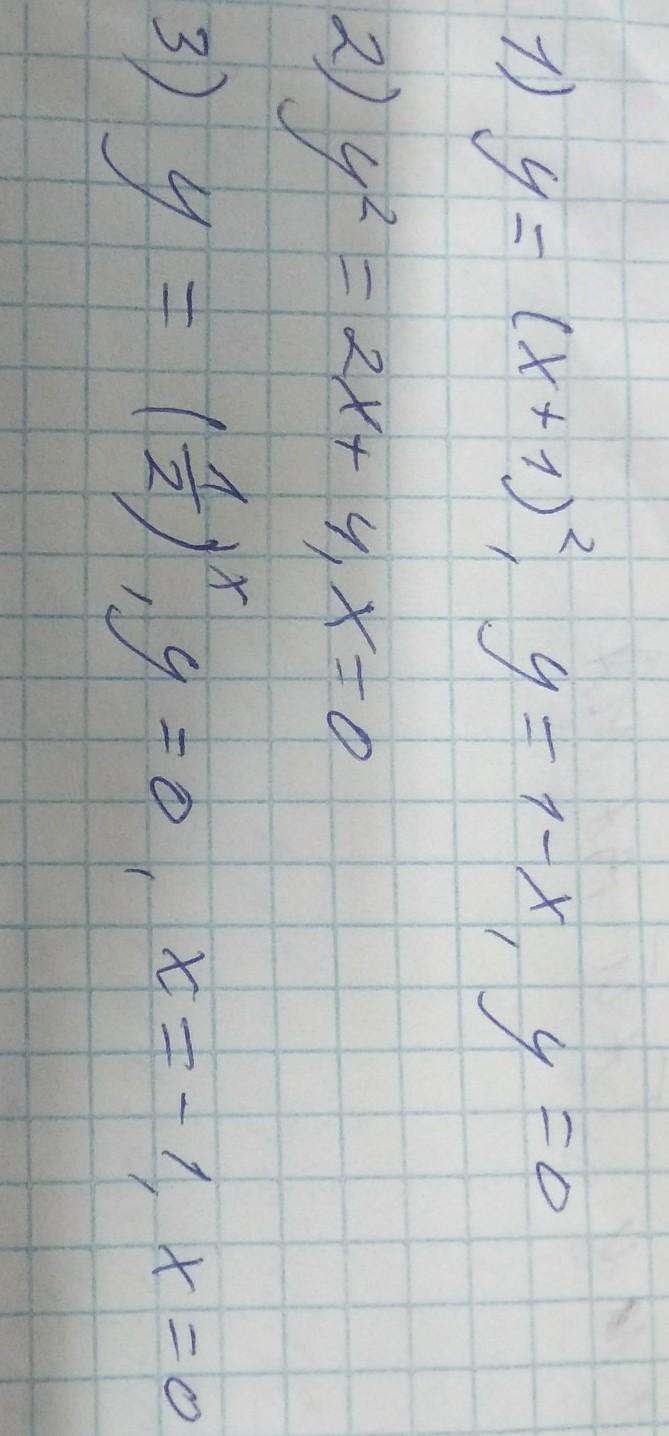 1) y = (x+1)², y = 1-x, y = 0
2) y² = 2x+4, x = 0
3) y = (1/2)ˣ, y = 0, x = -1, x = 0